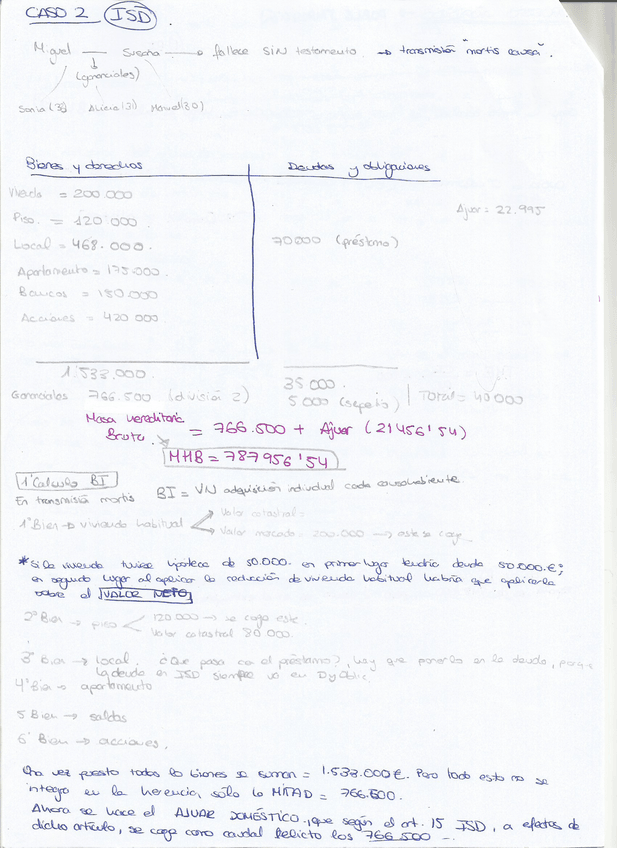 CASO 2 ISD.
Miguel — Susana → fallece SIN testamento. → transmisión "mortis causa".
(gananciales)
Sonia (3 Alicia (31 Manuel (30)
Bienes y derechos Deudas y obligaciones
= 200.000
Piso = 120 000 Ajuar = 22.995
Local = 468.000. 70000 (préstamo)
Apartamento = 175.000.
Bancos = 150.000
Acciones = 420 000
1.533.000. 35 000.
Gananciales 766.500 (división 2) 5 000 (sepelio) | Total = 40 000
Masa Hereditaria
Bruta. = 766.500 + Ajuar (21456'54)
MHB = 787956'54
1º Calculo BI
En transmisión mortis BI = VN adquisición individual cada causahabiente.
Valor catastral:
1º Bien → vivienda habitual
Valor mercado: 200.000 → este se coge
* Si la vivienda tuviese hipoteca de 50.000. en primer lugar tendría deuda 50.000.€;
en segundo lugar al aplicar la reducción de vivienda habitual habría que aplicarla
sobre el VALOR NETO
2º Bien → piso 120 000 → se coge este.
Valor catastral 80 000.
3º Bien → local. ¿Que pasa con el préstamo?, hay que ponerlo en la deuda,
la deuda en ISD siempre va en DyOblic.
4º Bien → apartamento
5 Bien → saldos
6º Bien → acciones.
Una vez puesto todos lo bienes se suman = 1.533.000€. Pero todo esto no se
integra en la herencia, sólo la MITAD = 766.500.
Ahora se hace el AJUAR DOMÉSTICO, que según el art. 15 ISD, a efectos de
dicho artículo, se coge como caudal Relicto los 766.500